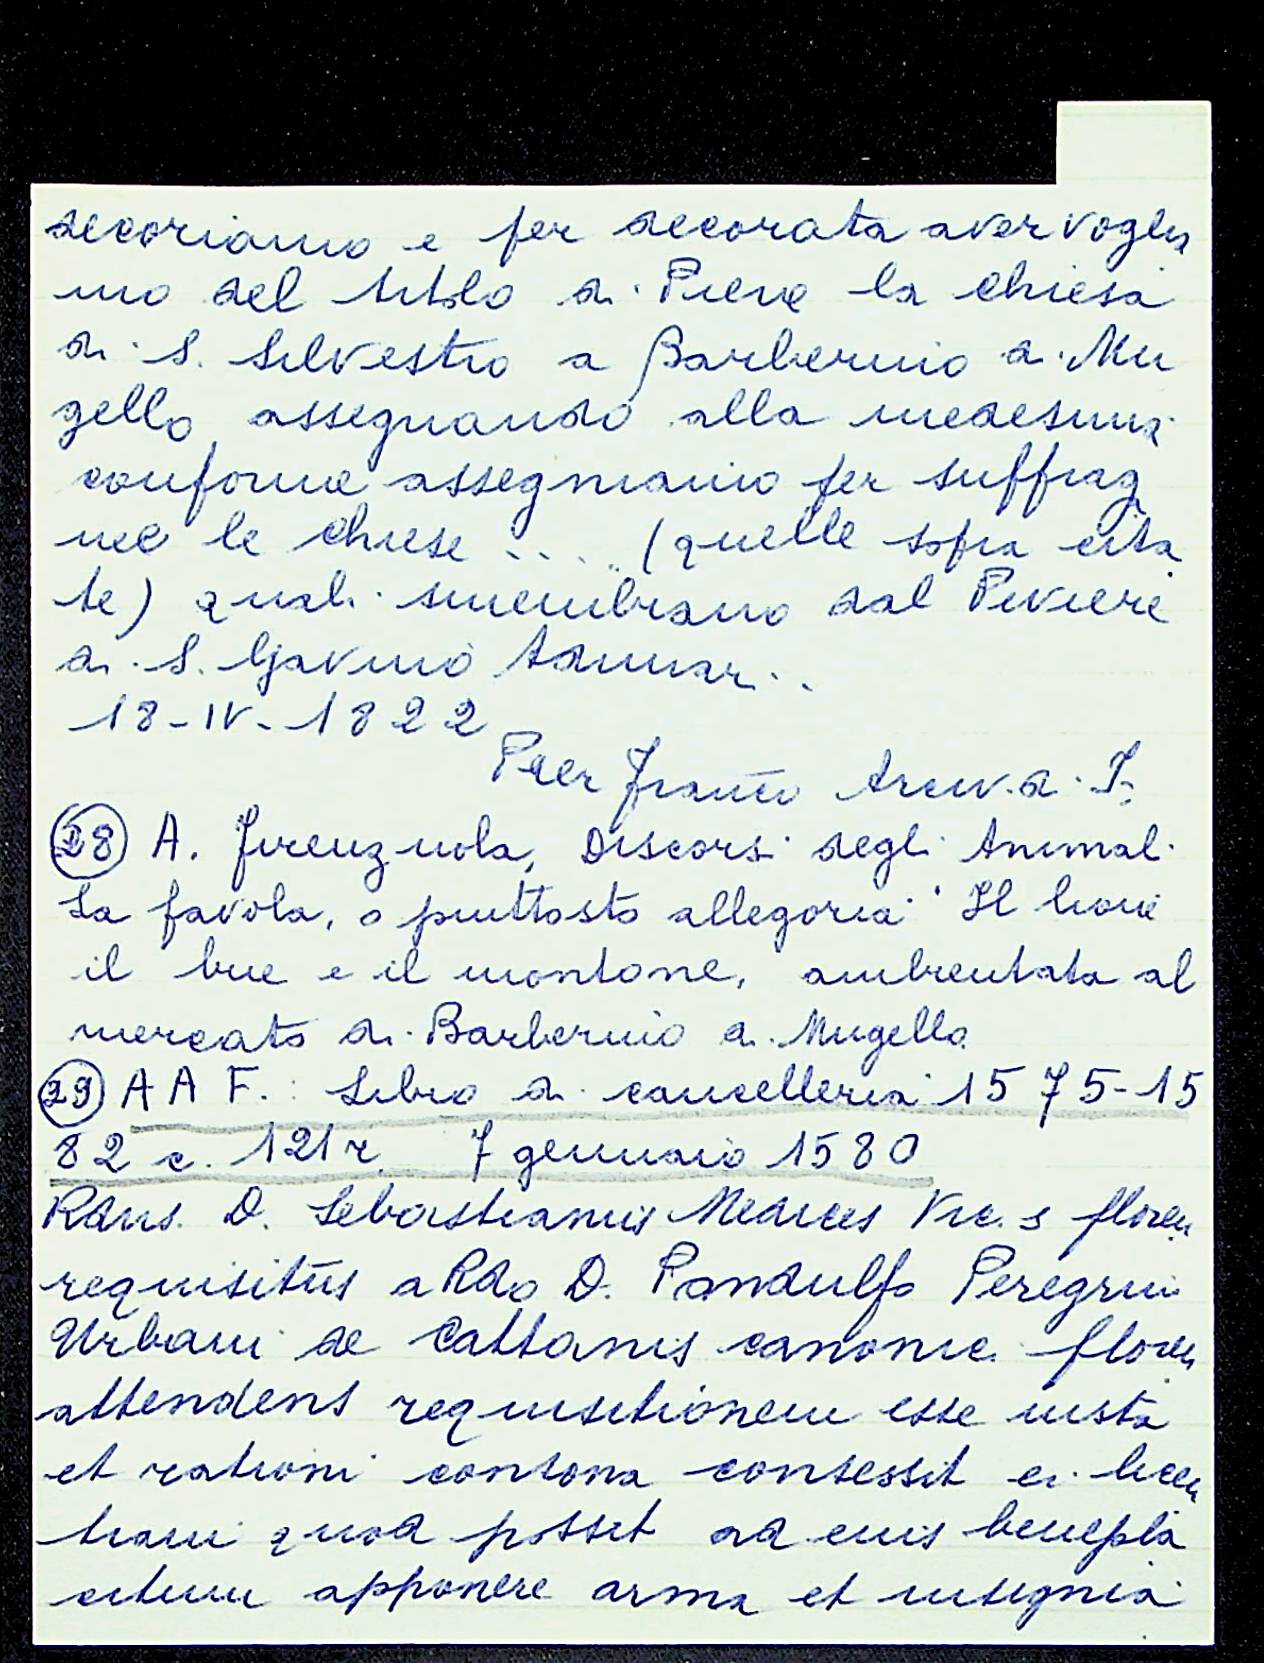 decoriamo e per decorata aver voglia
mo del titolo di Pieve la chiesa
di S. Silvestro a Barberino di Mu
gello, assegnando alla medesima
conforme assegniamo per suffrag
nee le chiese ..... (quelle sopra cita
te) quali smembrano dal Piviere
di S. Gavino Adimar...
18-IV-1822
Pier Franco Arciv. di F.
28 A. Firenzuola, Discorsi degli Animali
La favola, o piuttosto allegoria Il lione
il bue e il montone, ambientata al
mercato di Barberino di Mugello
29 A A F. : Libro di cancelleria 1575-15
82 c. 121r 7 gennaio 1580
Rdus. D. Sebastianus Medices Vic. s floren
requisitus a Rdo D. Pandulfo Peregrini
Urbani de Cattanis canonic. floren
attendens requisitionem esse iusta
et rationi consona consessit ei licen
tiam quod posset ad eius benepla
citum apponere arma et insignia